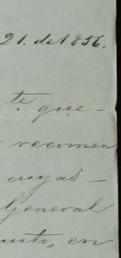 21. de 1856.
te que
recimen
cuyas
General
usto, en